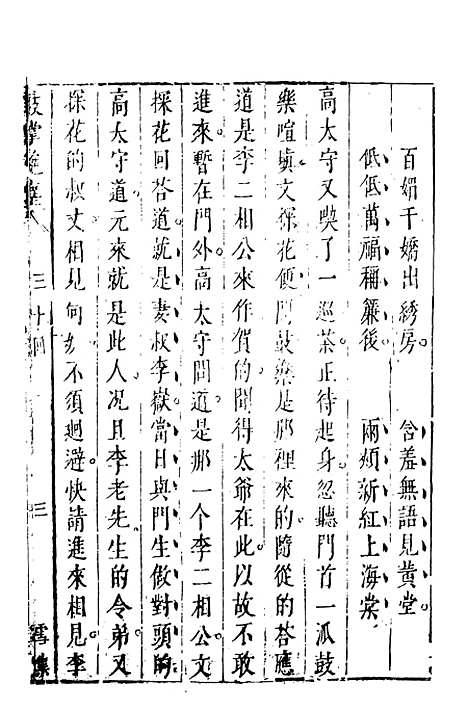 百媚千嬌出綉房　含羞無語見黄堂
低低萬福稱簾後　兩頰新紅上海棠
高太守又喫了一巡茶正待起身忽聽門首一派鼓
樂喧填文探花便問鼓樂是那裡來的隨從的荅應
道是李二相公來作賀的聞得太爺在此以故不敢
進來暫在門外高太守問道是那一个李二相公文
探花回荅道就是妻叔李嶽當日與門生做對頭的
高太守道元來就是此人况且李老先生的令弟又
探花的叔丈相見何妨不須廻避快請進來相見李
鼓掌絕塵　三十囘　三　雪集